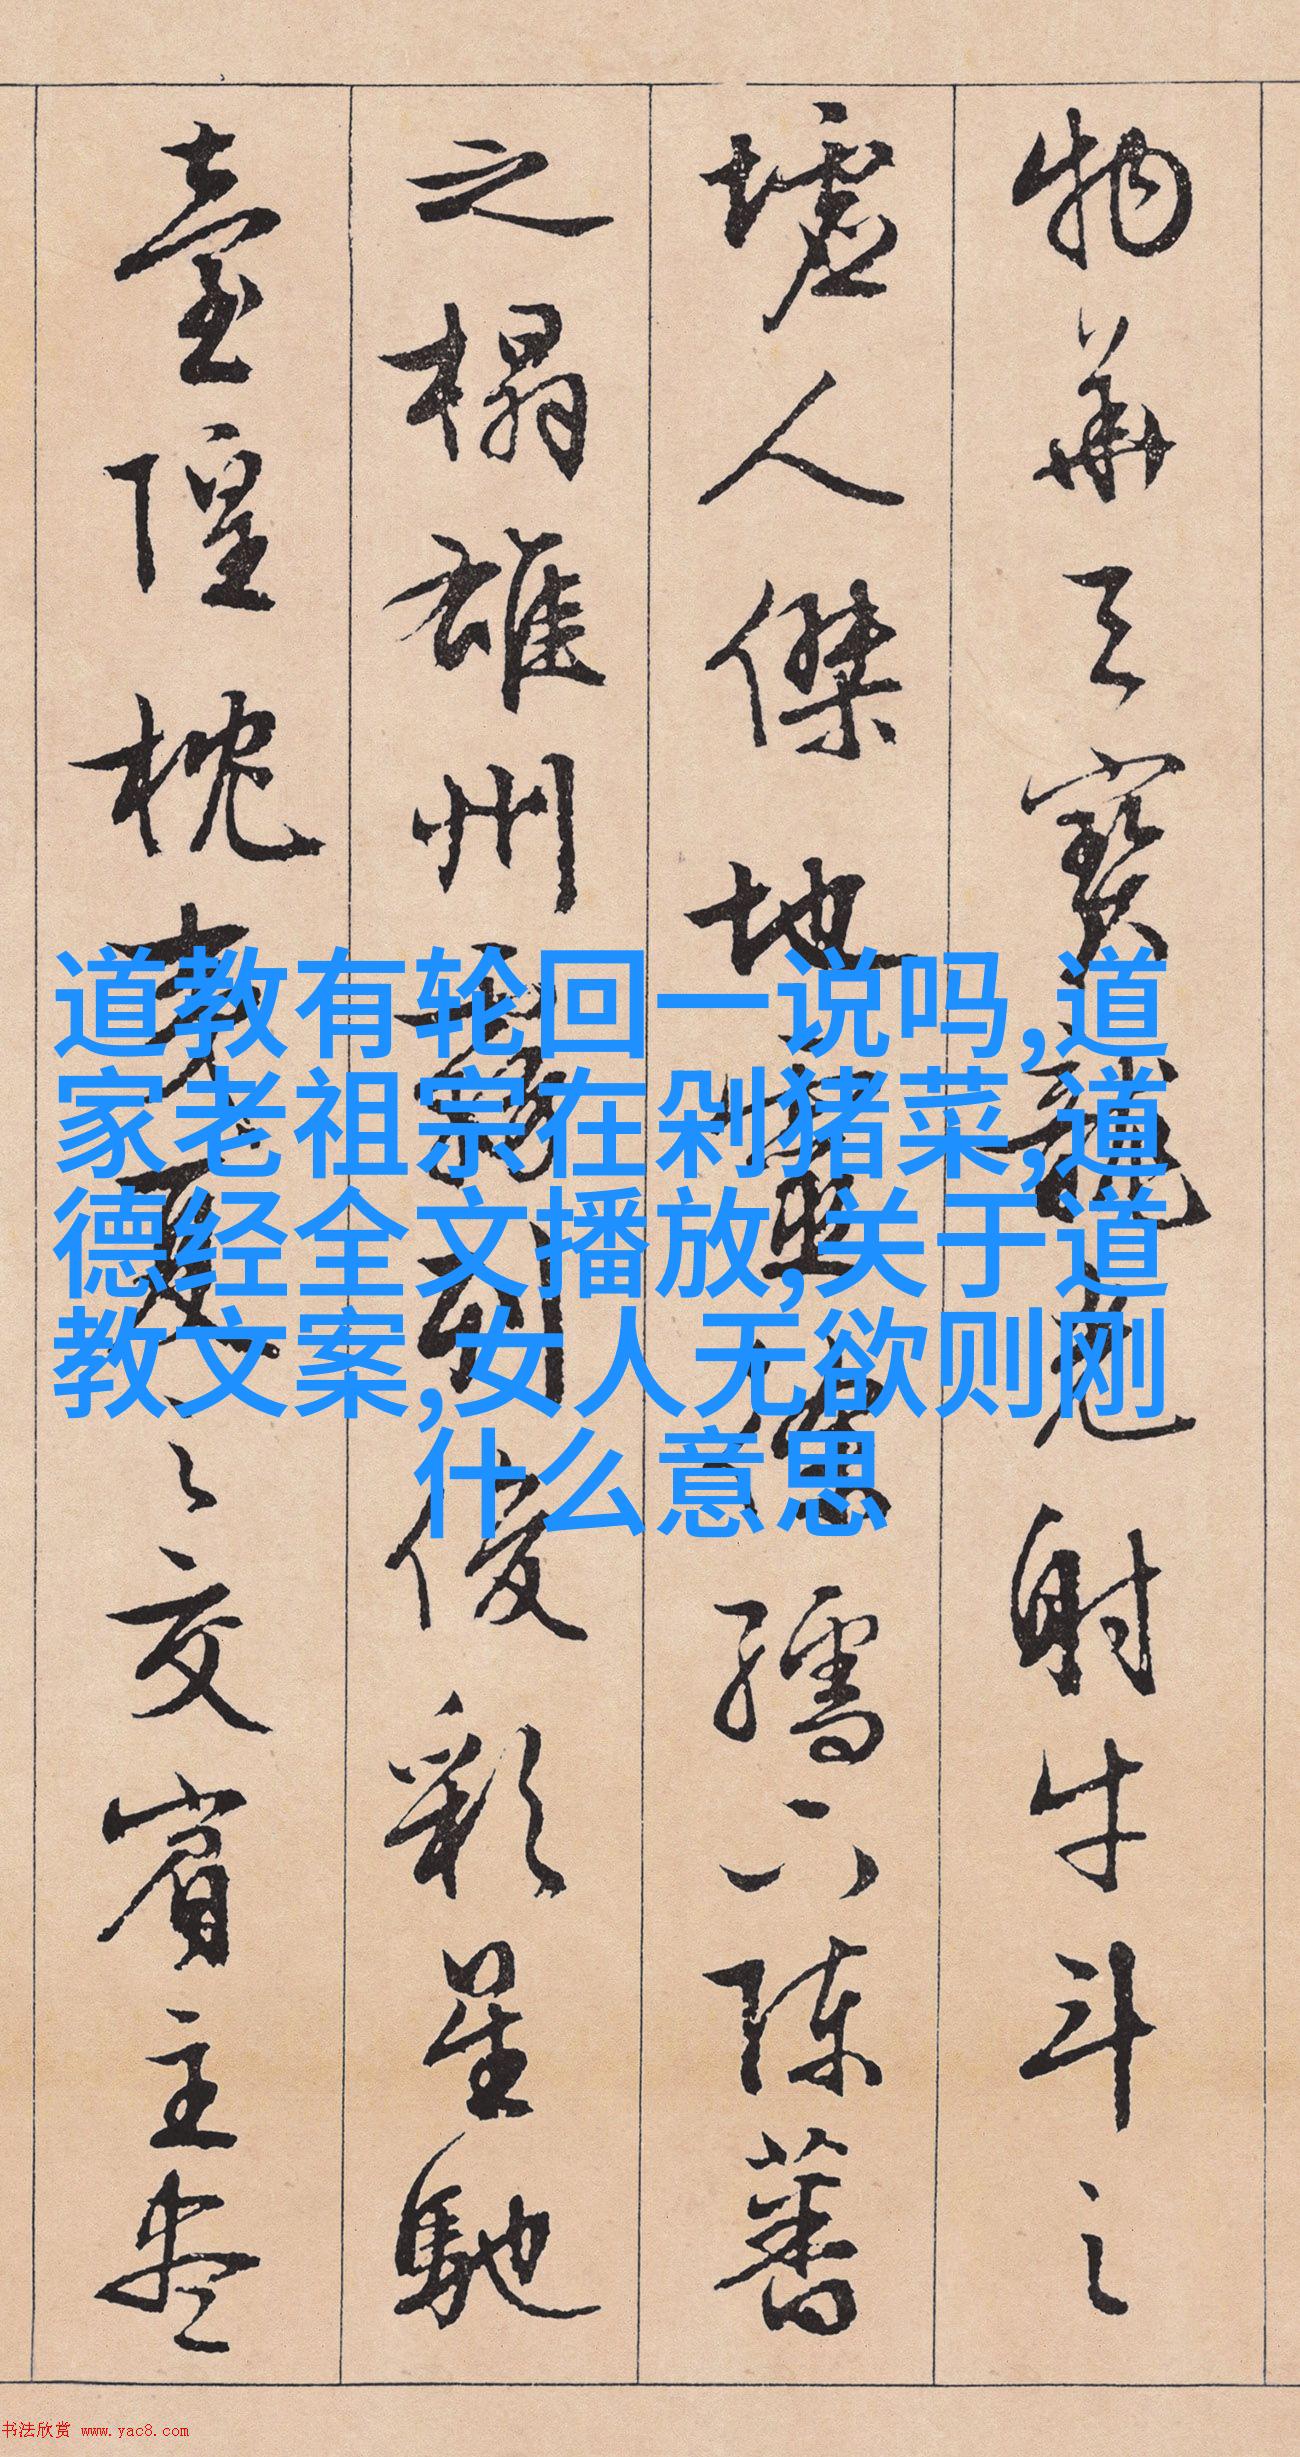 物華天寶龍光射牛斗之
墟人傑地靈徐孺下陳蕃
之榻雄州霧列俊彩星馳
臺隍枕東夷夏之交賓主盡
道教有轮回一说吗,道
家老祖宗在剁猪菜,道
德经全文播放,关于道
教文案,女人无欲则刚
什么意思
书法欣赏 www.yac8.com